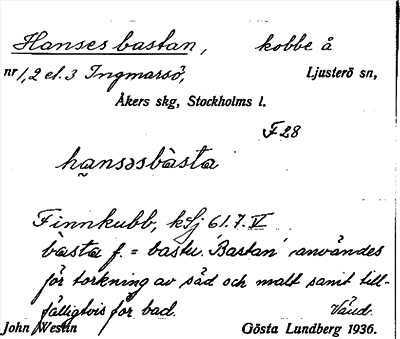 Hansesbastan, kobbe å
nr 1, 2 el. 3 Ingmarsö, Ljusterö sn,
Åkers skg, Stockholms l.
F28
ha̰nsəsbàsta
Finnkubb, kSj 61.7.V
bàsta f. = bastu. 'Bastan' användes
för torkning av säd och malt samt till-
fälligtvis för bad. Väud.
John Westin Gösta Lundberg 1936.